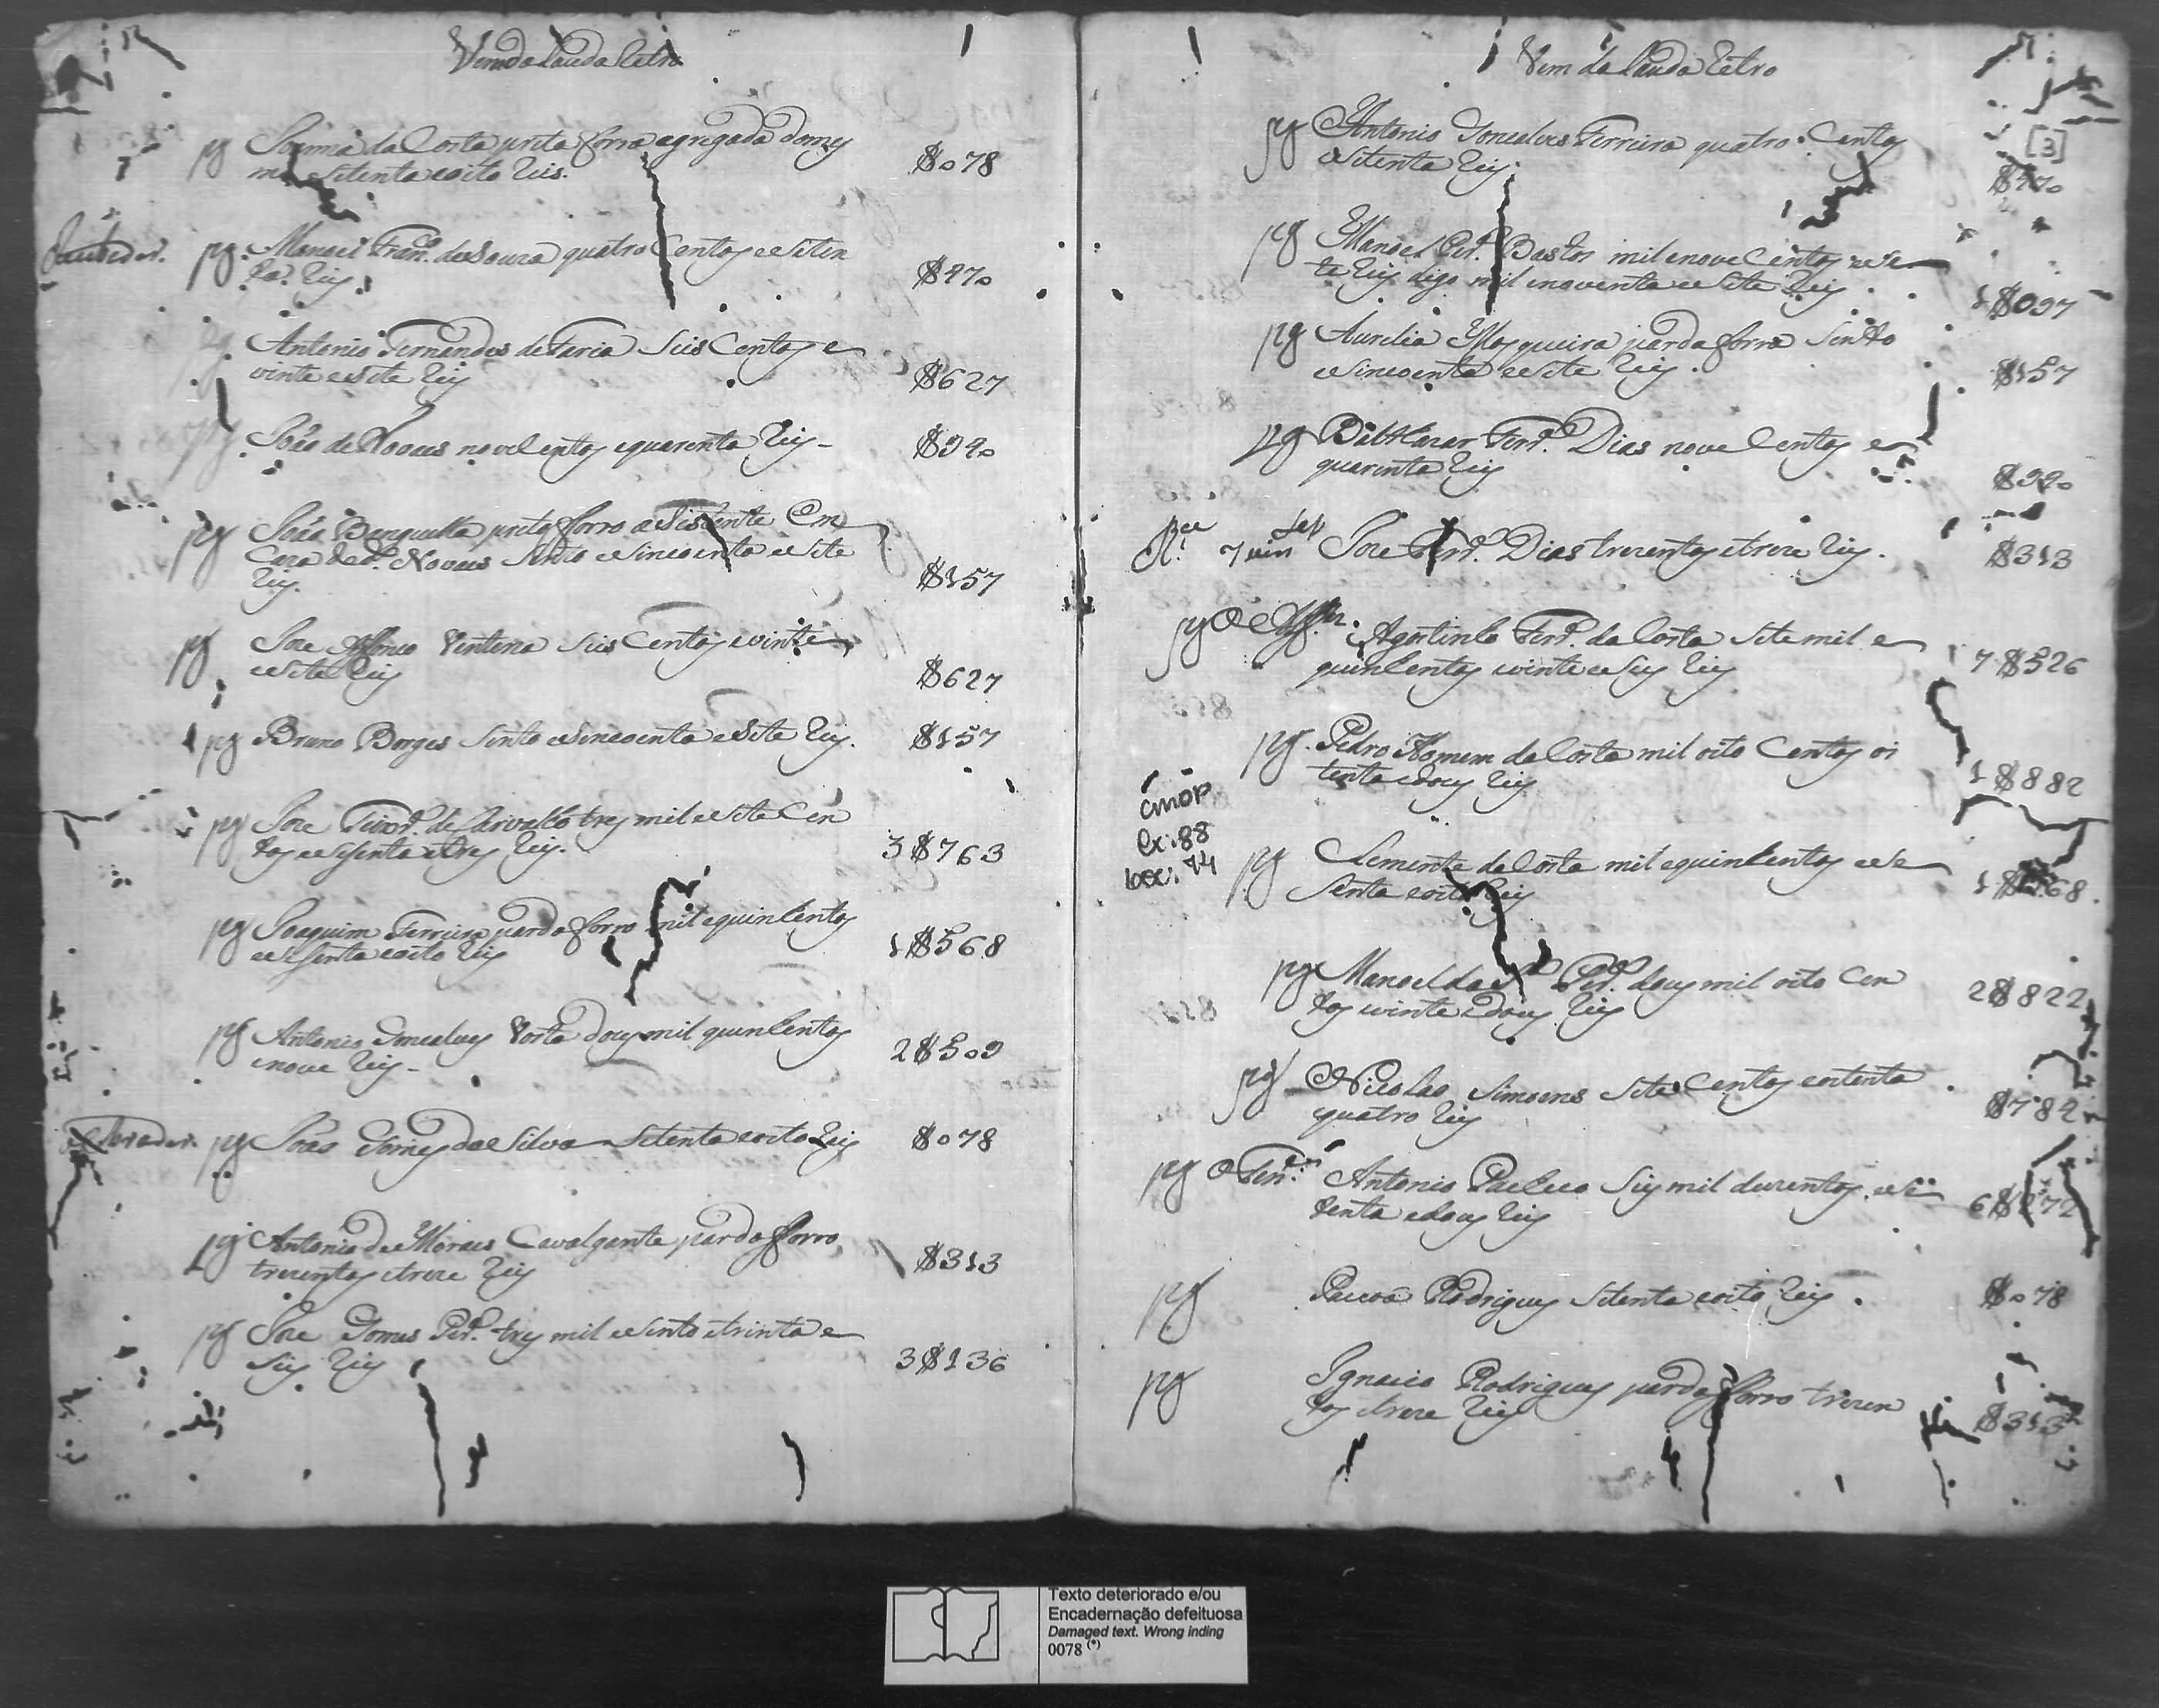 Vem da Lauda Retro
pg Joanna da Costa preta forra agregada do mes
mo setenta e oito Reis. $078
pg. Manoel Fran.co de Souza quatro Centos e Seten
ta Reis $470
pg. Antonio Fernandes de Faria Seis Centos e
vinte e Sete Reis $627
pg. João de Novaes nove Centos e quarenta Reis $940
pg João Benguella preto forro asistente Em
Caza de Novaes Sento e Sincoenta e Sete
Reis. $157
pg Joze Affonço Ventena Seis Centos e vinte
e Sete Reis $627
pg Bruno Borges Sento e Sincoenta e Sete Reis. $157
pg Joze de Carvalho tres mil e Sete Cen
tos e Sesenta e tres Reis. 3$763
pg Joaquim Ferreira pardo forro mil e quinhentos
e Sesenta e oito Reis 1$568
pg Antonio Gonsalves Porto dous mil quinhentos
e nove Reis 2$509
pg João Gomes da Silva Setenta e oito Reis $078
pg Antonio de Moraes Cavalgante pardo forro
trezentos e treze Reis $313
pg Joze Gomes Per.a tres mil e Sento e trinta e
Seis Reis 3$136
Vem da Lauda Retro
[3]
pg Antonio Gonsalves Ferreira quatro Centos
e Setenta Reis $470
pg Manoel Per.a Bastos mil e nove Centos e Se
te Reis digo mil e noventa e Sete Reis 1$097
pg Aurelia Mosqueira parda forra Sento
e Sincoenta e Sete Reis. $157
pg Balthazar Ferr.a Dias nove Centos e
quarenta Reis $940
Joze Ferr.a Dias trezentos e treze Reis. $313
pg O Agostinho Ferr.a da Costa Sete mil e
quinhentos e vinte e Seis Reis 7$526
pg. Pedro Homem da Costa mil oito Centos oi
tenta e dous Reis 1$882
CMOP
Cx: 88
Doc: 74
pg Clemente da Costa mil e quinhentos e Se
senta e oito Reis 1$568.
pg Manoel da Per.a dous mil oito Cen
tos e vinte e dous Reis 2$822
pg Nicolao Simoens Sete Centos e oitenta
e quatro Reis $784
pg O Ten.e Antonio Pacheco Seis mil duzentos e Se
tenta e dous Reis 6$272
pg Rodrigues Setenta e oito Reis. $078
pg Ignacio Rodrigues pardo forro trezen
tos e treze Reis $313
Texto deteriorado e/ou
Encadernação defeituosa
Damaged text. Wrong inding
0078 (*)